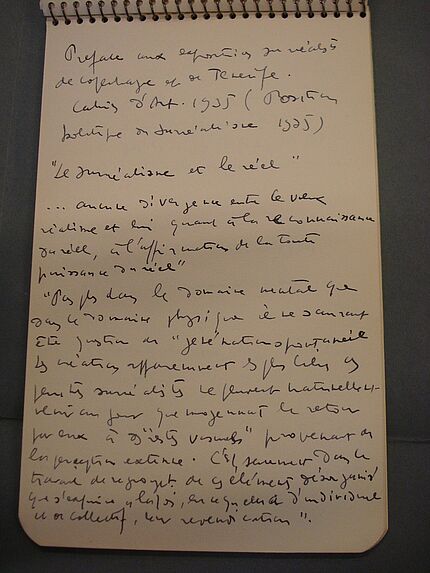 Préface aux expositions surréalistes
de Copenhague et de Ténérife.
Cahiers d'Art. 1935 (Position
politique du Surréalisme 1935)
"Le surréalisme et le réel"
... aucune divergence entre le vieux
réalisme et lui quant à la reconnaissance
du réel, à l'affirmation de la toute
puissance du réel"
"Pas plus dans le domaine mental que
dans le domaine physique il ne saurait
être question de "génération spontanée"
Les créations apparemment les plus libres des
peintres surréalistes ne peuvent naturellement
venir au jour que moyennant le retour
par eux à des "restes visuels" provenant de
la perception externe. C'est seulement dans le
travail de regroupt de ces éléments désorganisés
que s'exprime à la fois, en ce qu'elle a d'individuel
et de collectif, leur revendication".